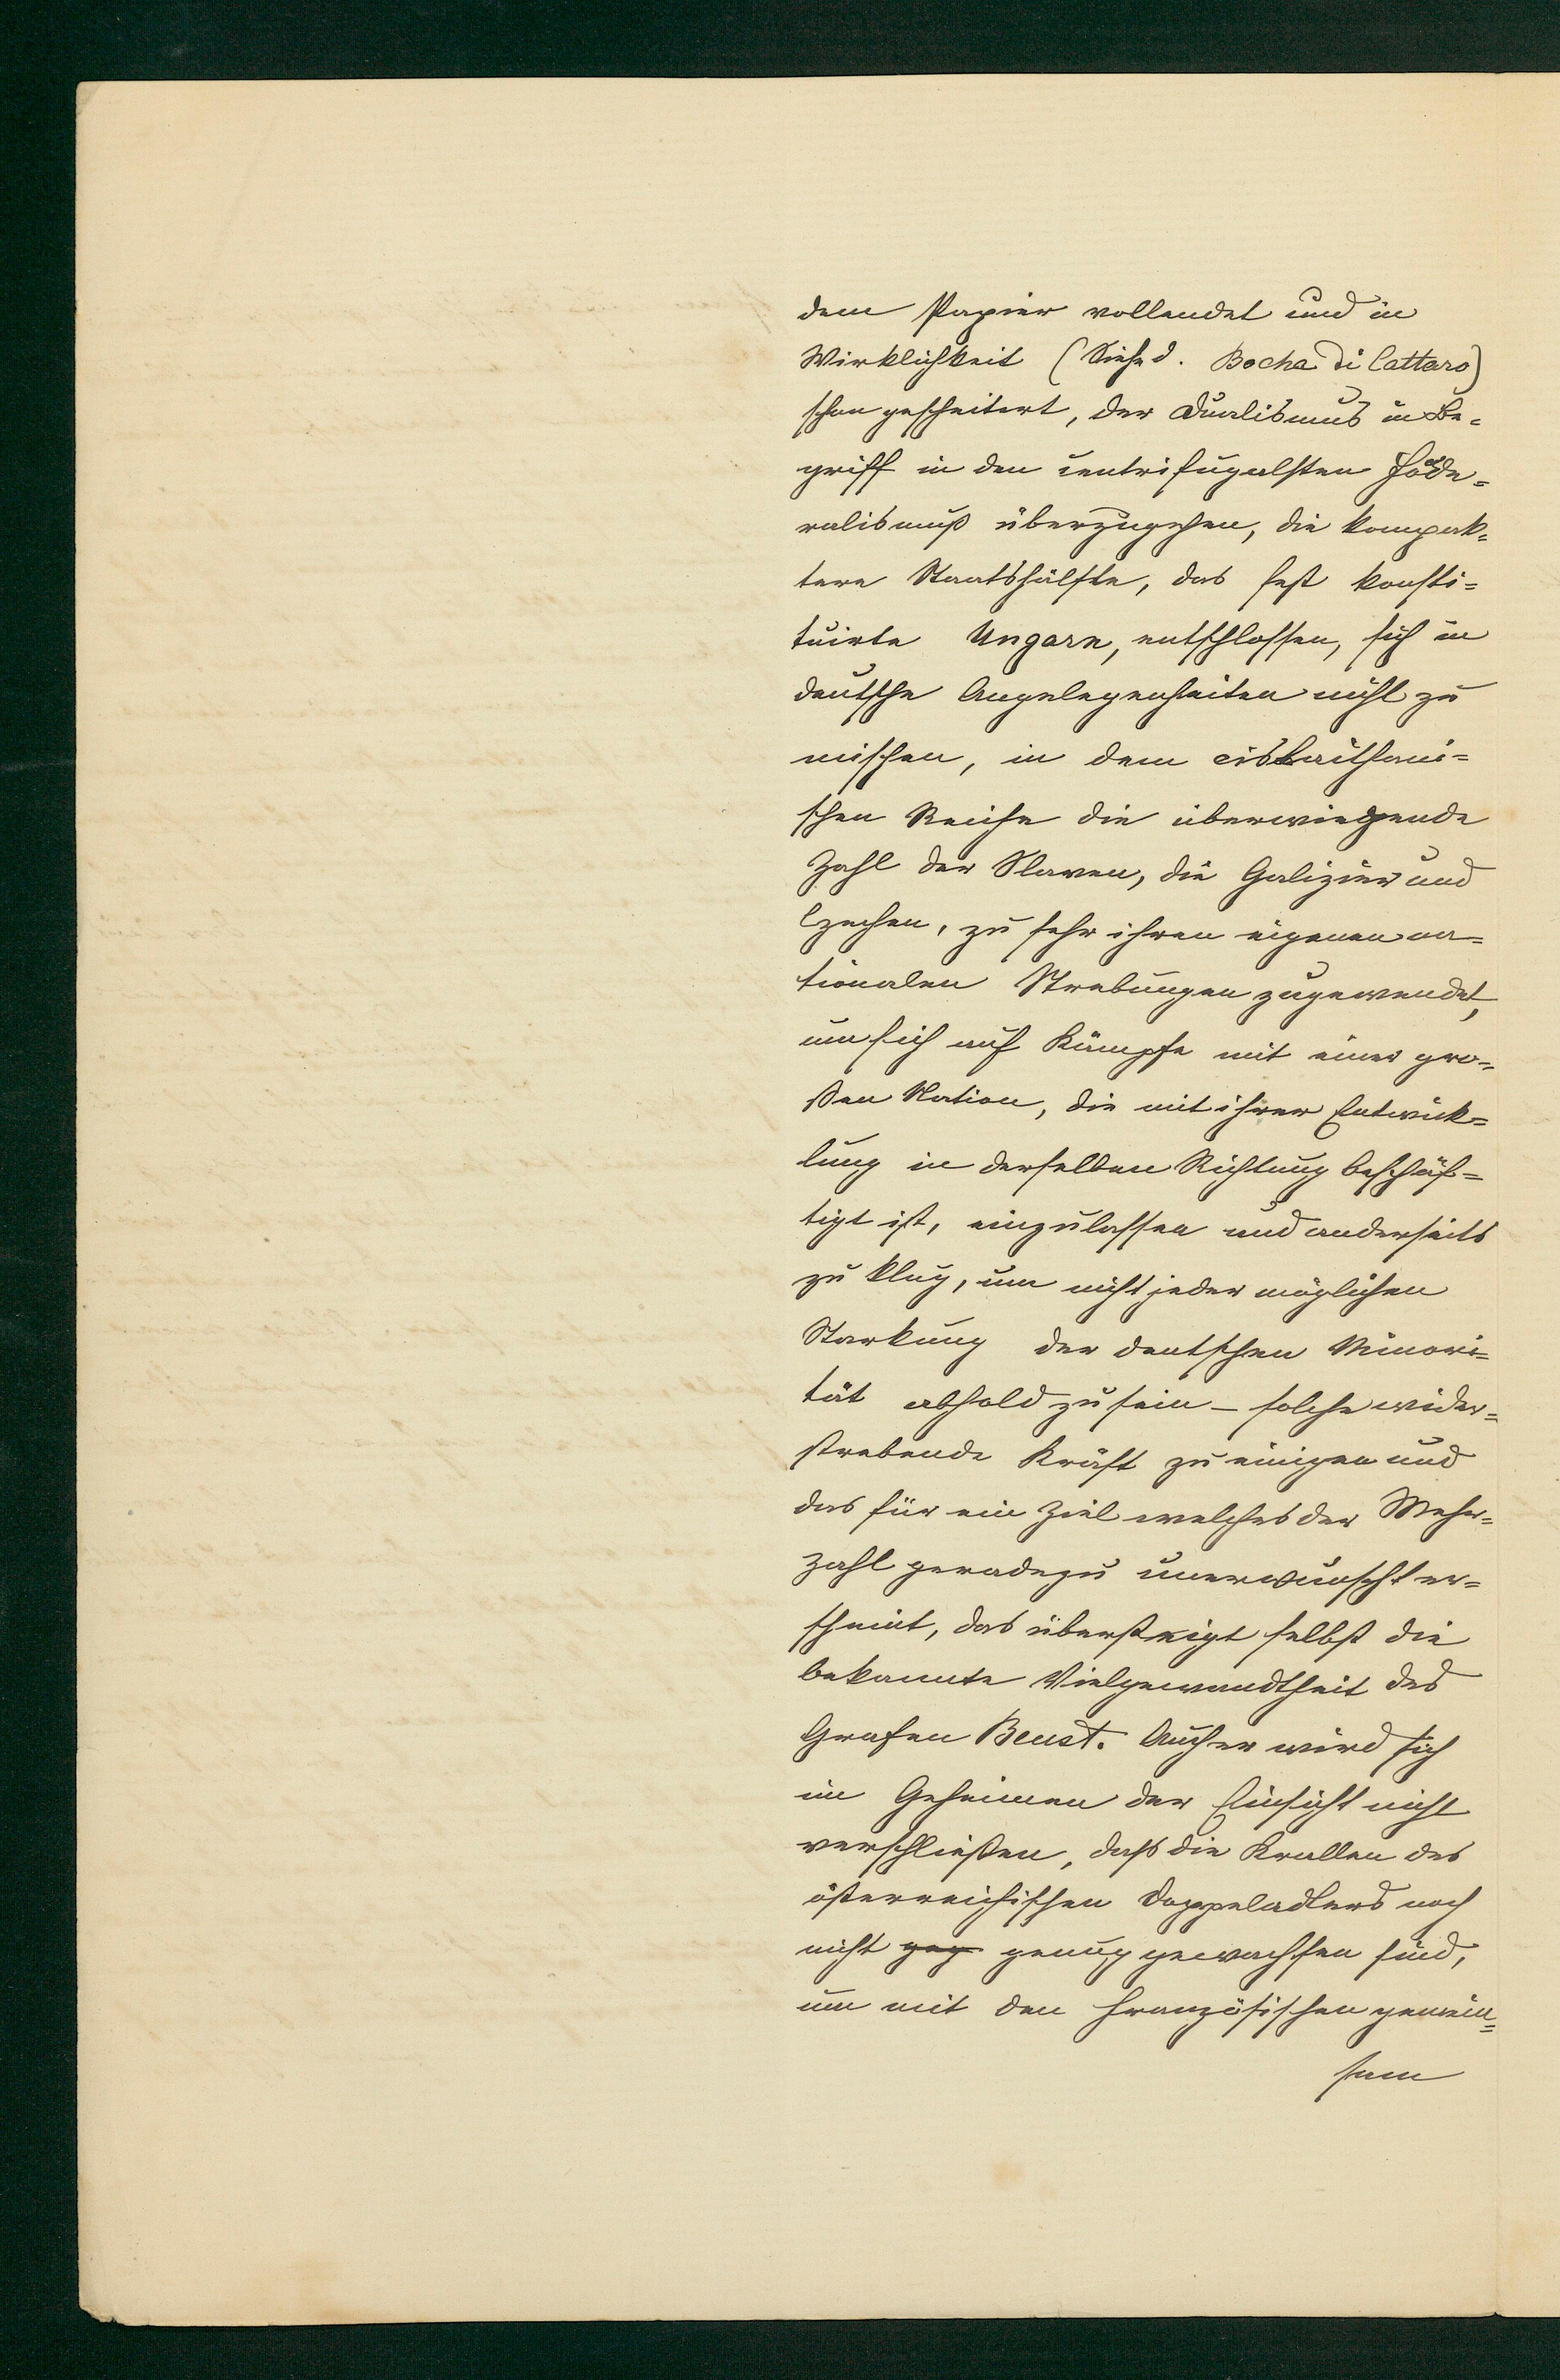 dem Papier vollendet und in
Wirklichkeit (Siehe d. Bocha di Cattaro)
schon gescheitert, der Dualismus in Be-
griff in den centrifugalsten Föde-
ralismuß überzugehen, die kompak-
tere Staatshälfte, das fest konsti-
tuirte Ungarn, entschlossen, sich in
deutsche Angelegenheiten nicht zu
mischen, in dem cisleithani-
schen Reiche die überwiegende
Zahl der Slaven, die Galizier und
Czechen, zu sehr ihren eigenen na-
tionalen Strebungen zugewendet,
um sich auf Kämpfe mit einer gro-
ßen Nation, die mit ihrer Entwick-
lung in derselben Richtung beschäf-
tigt ist, einzulassen und anderseits
zu klug, um nicht jeder möglichen
Starkung der deutschen Minori-
tät abhold zu sein – solche wider-
strebende Kräft zu einigen und
das für ein Ziel welches der Mehr-
zahl geradezu unerwünscht er-
scheint, das übersteigt selbst die
bekannte Vielgewandtheit des
Grafen Beust. Auch er wird sich
im Geheimen der Einsicht nicht
verschließen, daß die Krallen des
österreichischen Doppeladlers noch
nicht geg genug gewachsen sind,
um mit den französischen gemein-
sam